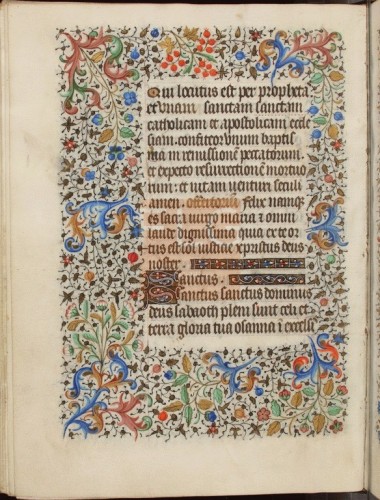 Qui locutus est per propheta
et vnam sanctam sanctam
catholicam et apostolicam eccle
siam. confiteor vnum baptis
ma in remissionē peccatorum.
et expecto resurrectionē mortuo
rum: et uitam venturi seculi
amen. offertorium Felix namqʒ
es sacra uirgo maria et omni
laude dignissima quia ex te or
tus est sol iusticie xp̄ristus deus
noster.
Sanctus.
Sanctus sanctus dominus
deus sabaoth pleni sunt celi et
terra gloria tua osanna i excelsi